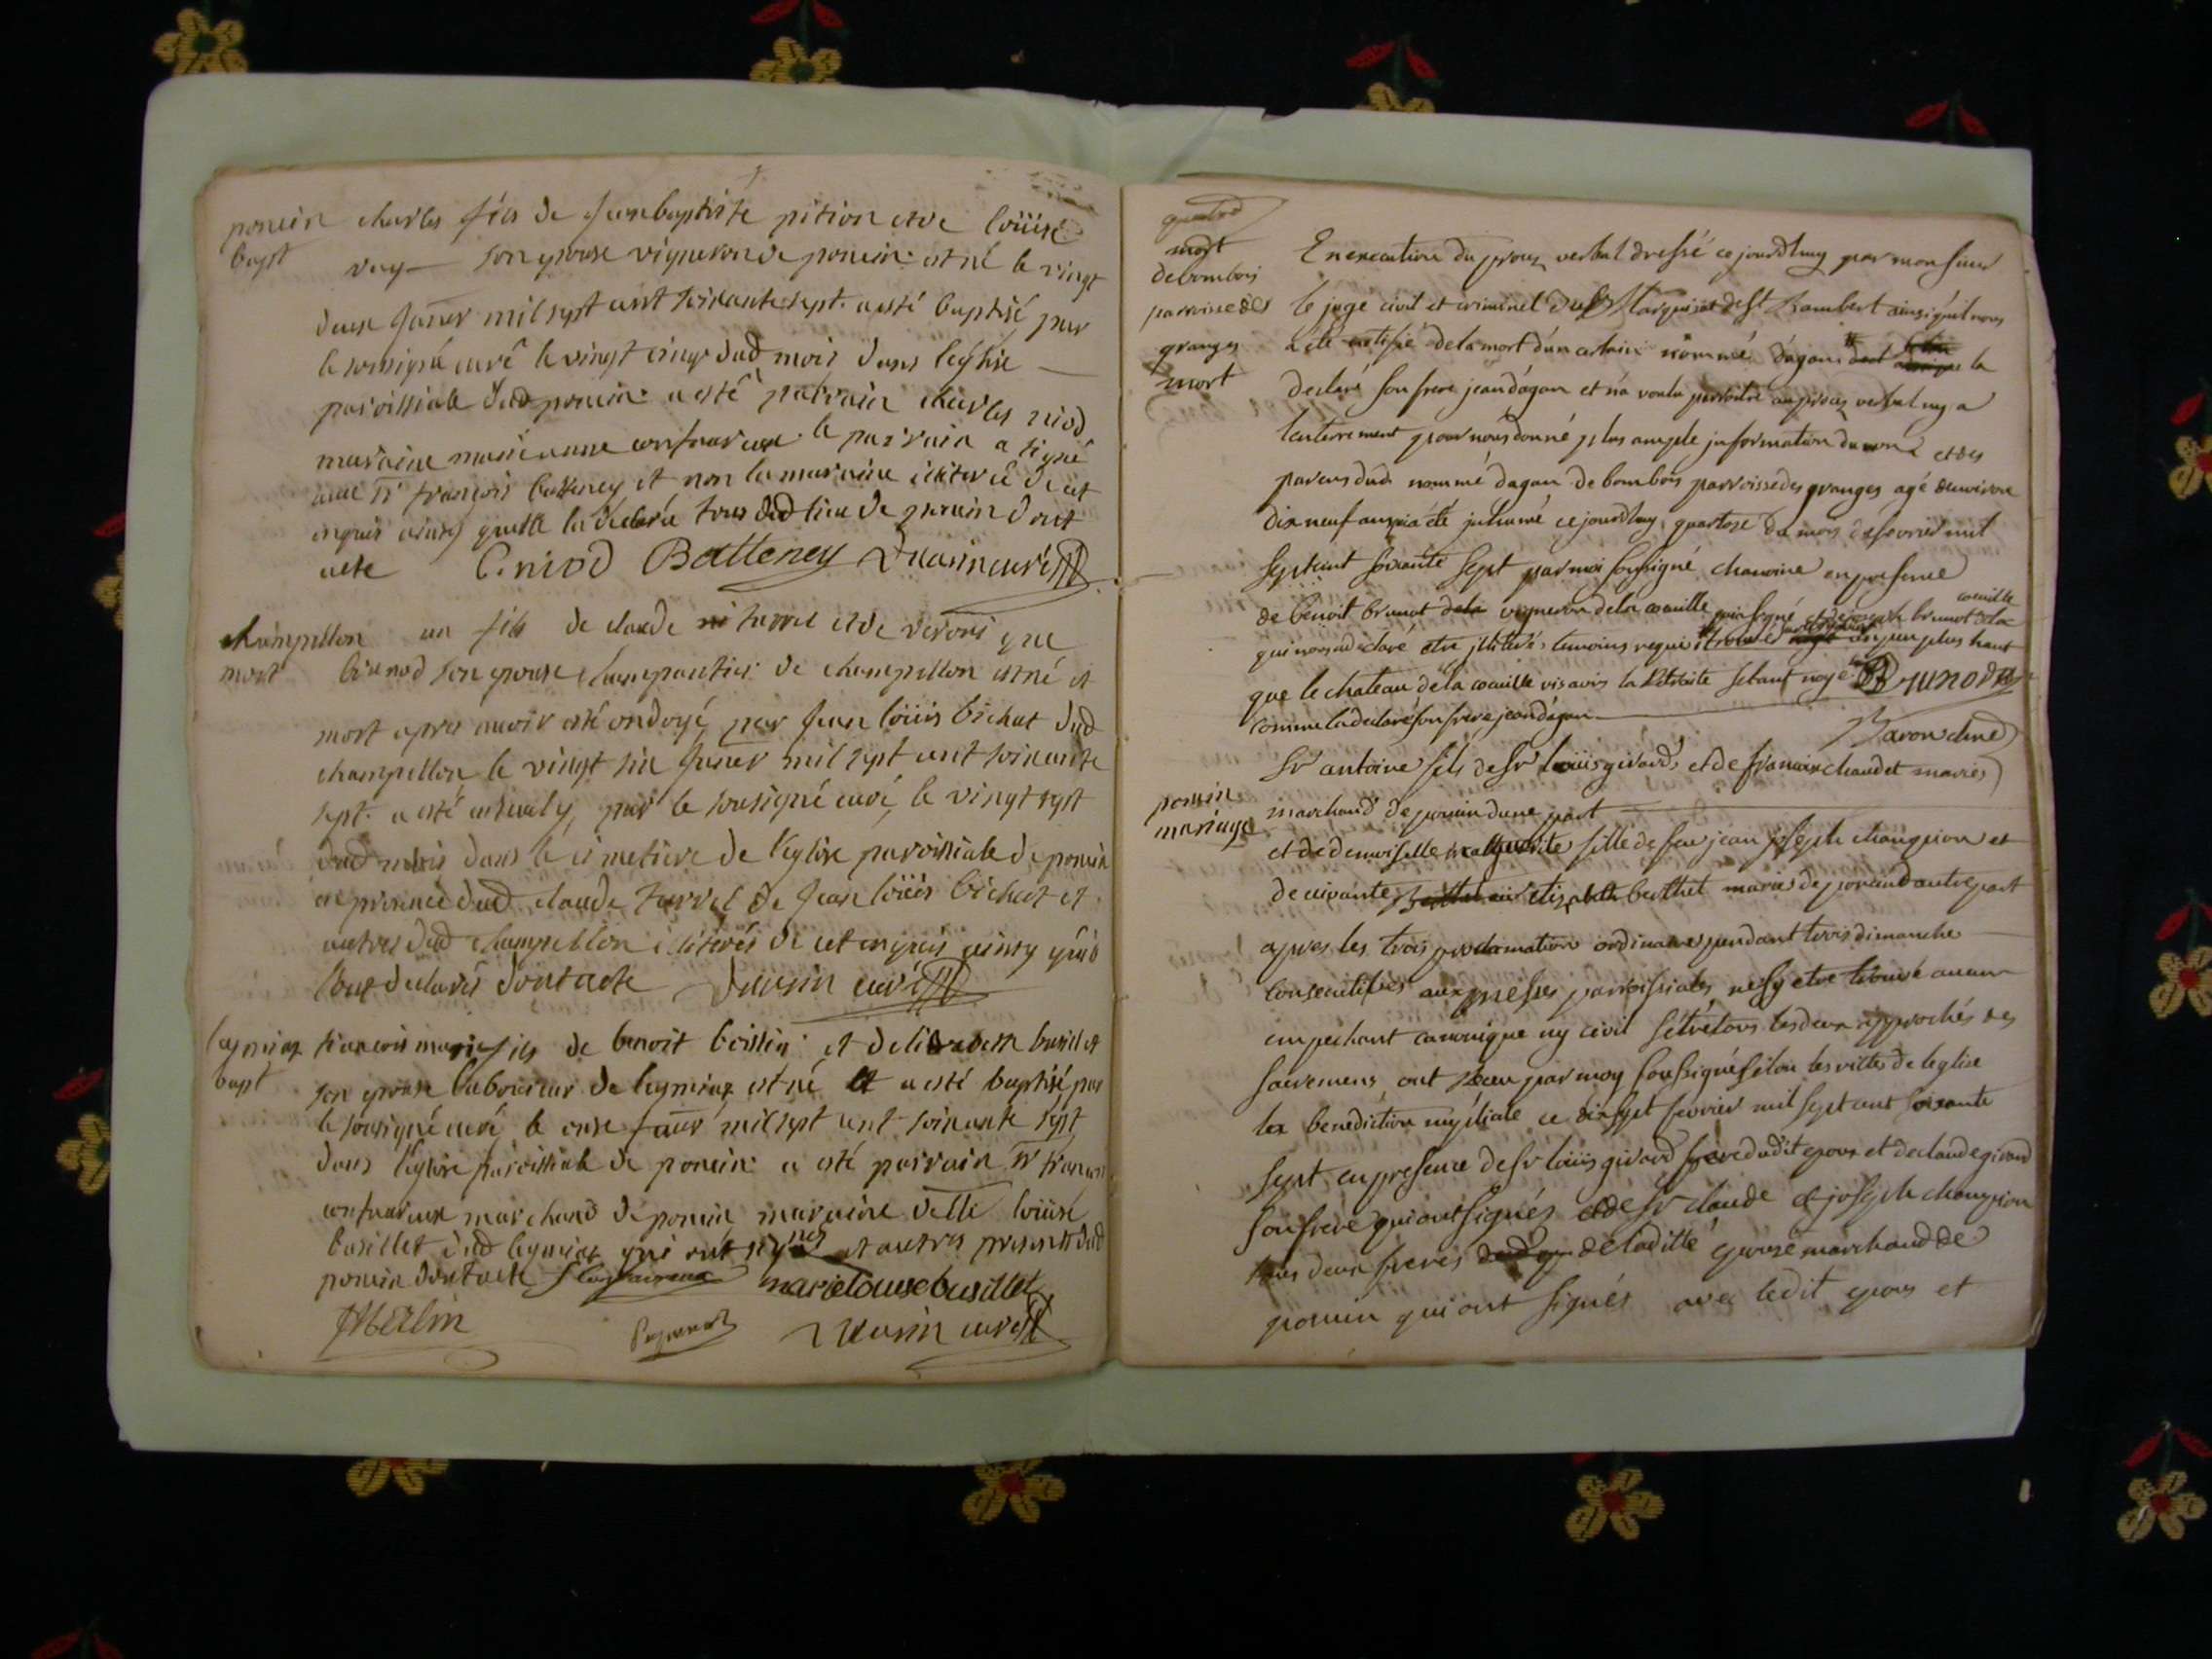 poncin charles fils de Jeanbaptiste pition et de loüise
bapt vuy son epouse vigneron de poncin est né le vingt
deux Janer mil sept cent soixante sept. a esté baptisé par
le soussigné curé le vingt cinq dud mois dans leglise
paroissiale dud poncin a esté parrain charles niod
maraine marianne confavreux le parrain a signé
avec sr françois batteney et non la maraine illiterée de cet
enquis ainsy quelle la declarée tous dud lieu de poncin dont
acte C. niod Batteney curé
champillon un fils de claude tarrel et de veroni que
mort brunod son epouse de champillon est né et
mort apres avoir esté ondoyé par Jean loüis bichat dud
champillon le vingt six Janer mil sept cent soixante
sept. a esté ensevely par le sousigné curé le vingt sept
dud mois dans le cimetiere de l'eglise paroissiale de poncin
en presence dud claude tarrel de Jean loüis bichat et
autres dud champillon illiterés de cet enquis ainsy quils
lont declarés dont acte curé
leymiaz françois marie fils de benoit boissin et delisabeth busillet
bapt son epouse laboureur de leymiaz est né et a esté baptisé par
le sousigné curé le onze mil sept cent soixante sept
dans l'eglise paroissiale de poncin a esté parrain sr francois
confavreux marchand de poncin maraine delle loüise
busillet dud leymiaz qui ont signés et autres presents dud
poncin dont acte f Confavreux marie louise busillet
curé
mort En execution du procez verbal dressé ce jourdhuy par monsieur
debombois
parroisse des le juge civil et criminel du Marquisat de St Rambert ainsi quil nous
granges a été notifié de la mort d'un certain nommé dagan la
mort declaré son frere jean dagan et n'a voulu paroitre au procez verbal ny a
lenterrement pour nous donné plus ample information du nom et des
parens dud nommé dagan de bombois parroisse des granges agé denviron
dix neuf ans a été inhumé ce jourdhuy quatorze du mois de fevrier mil
sept cent soixante sept par moi soussigné chanoine en presence
de benoit brunot vigneron de la coueille et de joseph brunot de la coueille
qui nous a declaré etre illiterés temoins requis un peu plus haut
que le chateau de la coueille vis avis la Retraite setant noyé Brunod
comme la declaré son frere jean dagan
Baron chne
Sr antoine fils de Sr loüis girard et de françoise chaudet mariés
poncin marchand de poncin dune part
mariage et de demoiselle fille de feu jean joseph champion et
de vivante elizabeth berthet mariés de poncin dautre part
apres les trois proclamation ordinaires pendant trois dimanche
consecutives aux messes parroissiales ne sy etre trouvé aucun
empechant canonique ny civil sétre tous les deux approchés des
sacremens ont Recu par moy soussigné selon les rittes de leglise
la benediction nuptiale ce dixsept fevrier mil sept cent soixante
sept en presence de Sr loüis girard dudit epoux et de claude girard
son frere qui ont signés et de Sr claude et joseph champion
tous deux freres de laditte epouse marchand de
poncin qui ont signés avec ledit epoux et